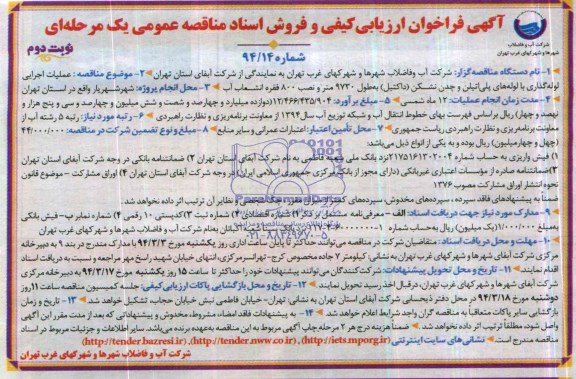 آگهی فراخوان ارزیابی‌کیفی و فروش اسناد مناقصه عمومی یک مرحله‌ای
نوبت دوم
شماره ۹۴/۱۴
شرکت آب و فاضلاب
شهرها و شهرکهای غرب تهران
۱- نام دستگاه مناقصه‌گزار: شرکت آب وفاضلاب شهرها و شهرکهای غرب تهران به نمایندگی از شرکت آبفای استان تهران ۲- موضوع مناقصه: عملیات اجرایی
لوله‌گذاری با لوله‌های پلی‌اتیلن و چدن نشکن (داکتیل) بطول ۹۷۳۰ متر و نصب ۸۰۰ فقره انشعاب آب ۳- محل انجام پروژه: شهرشهریار واقع در استان تهران
۴- مدت زمان انجام عملیات: ۱۲ ماه شمسی ۵- مبلغ برآورد: ۱۲/۴۶۶/۴۳۵/۹۰۴ (دوازده میلیارد و چهارصد و شصت و شش میلیون و چهارصد و سی و پنج هزار و
نهصد و چهار) ریال براساس فهرست بهای خطوط انتقال آب و شبکه توزیع آب سال ۱۳۹۴ از معاونت برنامه‌ریزی و نظارت راهبردی ۶- رتبه مورد نیاز: رتبه ۵ رشته آب از
معاونت برنامه‌ریزی و نظارت راهبردی ریاست جمهوری ۷- محل تأمین اعتبار: اعتبارات عمرانی و سایر منابع ۸- مبلغ و نوع تضمین شرکت در مناقصه: ۴۴/۰۰۰/۰۰۰
(چهل و چهارمیلیون) ریال بوده و به یکی از انواع ذیل می‌باشد:
۱) فیش واریزی به حساب شماره ۲۱۷۵۱۶۱۳۰۲۰۰۴ نزد بانک ملی شعبه فاطمی به نام شرکت آبفای استان تهران ۲) ضمانتنامه بانکی در وجه شرکت آبفای استان تهران
۳) ضمانتنامه صادره از مؤسسات اعتباری غیربانکی (دارای مجوز از بانک مرکزی جمهوری اسلامی ایران) در وجه شرکت آبفای استان تهران ۴) اوراق مشارکت - موضوع قانون
نحوه انتشار اوراق مشارکت مصوب ۱۳۷۶
ضمناً به پیشنهادهای فاقد سپرده، سپرده‌های مخدوش، سپرده‌های کمتر از میزان مقرر، چک شخصی و نظایر آن ترتیب اثر داده نخواهد شد.
۹- مدارک مورد نیاز جهت دریافت اسناد: الف - معرفی‌نامه مشتمل بر ذکر ۱) شماره اقتصادی ۲) شماره ثبت ۳) کدپستی ۱۰ رقمی ۴) شماره نمابر ب- فیش بانکی
به مبلغ ۱/۰۰۰/۰۰۰ (یک میلیون) ریال به‌حساب شماره نزد بانک بنام شرکت آب و فاضلاب شهرها و شهرکهای غرب تهران
۱۰- مهلت و محل دریافت اسناد: متقاضیان شرکت در مناقصه می‌توانند حداکثر تا پایان ساعت اداری روز یکشنبه مورخ ۹۴/۳/۳ با مدارک مندرج در بند ۹ به دبیرخانه
مرکزی شرکت آبفای شهرها و شهرکهای غرب تهران به نشانی: کیلومتر ۷ جاده مخصوص کرج- تهرانسر مرکزی، انتهای خیابان شهید راسخ مهر مراجعه و نسبت به دریافت اسناد
اقدام نمایند. ۱۱- تاریخ و محل تحویل پیشنهادات: شرکت‌کنندگان می‌توانند پیشنهادات خود را حداکثر تا ساعت ۱۵ روز یکشنبه مورخ ۹۴/۳/۱۷ به دبیرخانه مرکزی
شرکت آبفای شهرها و شهرکهای غرب تهران، درقبال اخذ رسید تحویل نمایند. ۱۲- تاریخ و محل بازگشایی پاکات ارزیابی‌کیفی: جلسه کمیسیون مناقصه ساعت ۱۱ روز
دوشنبه مورخ ۹۴/۳/۱۸ در محل دفتر ذیحسابی شرکت آبفای استان تهران به نشانی: تهران- خیابان فاطمی نبش خیابان حجاب، تشکیل خواهد شد. ۱۳- تاریخ و زمان
بازگشایی سایر پاکات متعاقباً به مناقصه گران واجد شرایط اعلام خواهد شد. ۱۴- به پیشنهادات فاقد امضاء، مشروط، مخدوش و پیشنهاداتی که بعد از مدت مقرر این آگهی
واصل شود، مطلقاً ترتیب اثر داده نخواهد شد. ضمناً هزینه درج هر ۲ مرحله چاپ آگهی مربوط به این مناقصه به‌عهده برنده می‌باشد. سایر اطلاعات و جزئیات مربوط در اسناد
مناقصه مندرج است. نشانی‌های سایت اینترنتی (http://iets.mporg.ir)، (http://tender.nww.co.ir)، (http://tender.bazresi.ir)
شرکت آب و فاضلاب شهرها و شهرکهای غرب تهران